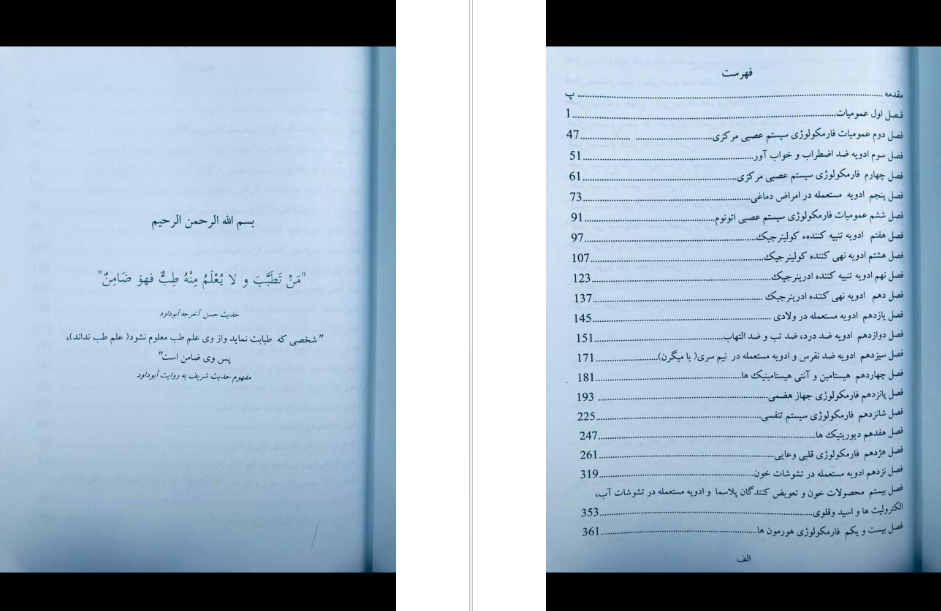 بسم الله الرحمن الرحيم
"مَنْ تَطَبَّبَ و لا يُعْلَمُ مِنْهُ طِبٌّ فهوَ ضَامِنٌ"
حدیث حسن اخرجه ابوداود
"شخصی که طبابت نماید واز وی علم طب معلوم نشود( علم طب نداند)،
پس وی ضامن است"
مفهوم حدیث شریف به روایت ابوداود
فهرست
مقدمه ................ پ
فصل اول عمومیات................1
فصل دوم عمومیات فارمکولوژی سیستم عصبی مرکزی................47
فصل سوم ادویه ضد اضطراب و خواب آور................51
فصل چهارم فارمکولوژی سیستم عصبی مرکزی................61
فصل پنجم ادویه مستعمله در امراض دماغی................73
فصل ششم عمومیات فارمکولوژی سیستم عصبی اتونوم................91
فصل هفتم ادویه تنبیه کنندهء کولینرجیک................97
فصل هشتم ادویه نهی کننده کولینرجیک................107
فصل نهم ادویه تنبیه کننده ادرینرجیک................123
فصل دهم ادویه نهی کننده ادرینرجیک ................137
فصل یازدهم ادویه مستعمله در ولادی ................145
فصل دوازدهم ادویه ضد درد، ضد تب و ضد التهاب................151
فصل سیزدهم ادویه ضد نقرس و ادویه مستعمله در نیم سری( یا میگرن)................171
فصل چهاردهم هیستامین و آنتی هیستامینیک ها................181
فصل پانزدهم فارمکولوژی جهاز هضمی................193
فصل شانزدهم فارمکولوژی سیستم تنفسی................225
فصل هفدهم دیوریتیک ها................247
فصل هژدهم فارمکولوژی قلبی وعایی................261
فصل نزدهم ادویه مستعمله در تشوشات خون................319
فصل بیستم محصولات خون و تعویض کنندگان پلاسما و ادویه مستعمله در تشوشات آب،
الکترولیت ها و اسید وقلوی................353
فصل بیست و یکم فارمکولوژی هورمون ها................361
الف